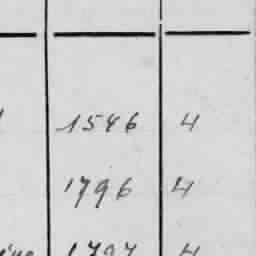 1546 4
1796 4
1797 4